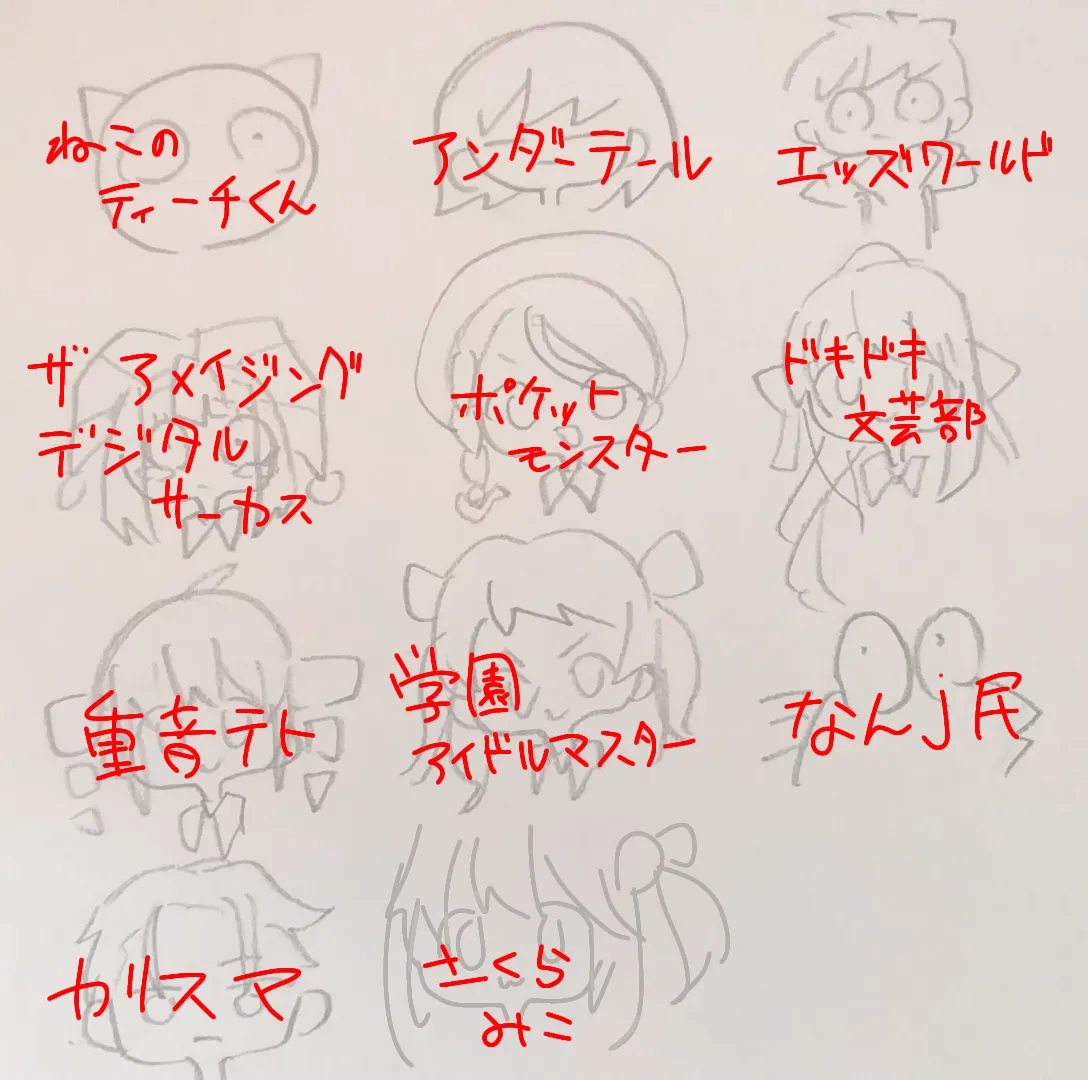 ねこの
ティーチくん
アンダーテール
エッズワールド
ザ アメイジング
デジタル
サーカス
ポケット
モンスター
ドキドキ
文芸部
重音テト
学園
アイドルマスター
なんj民
カリスマ
さくら
みこ